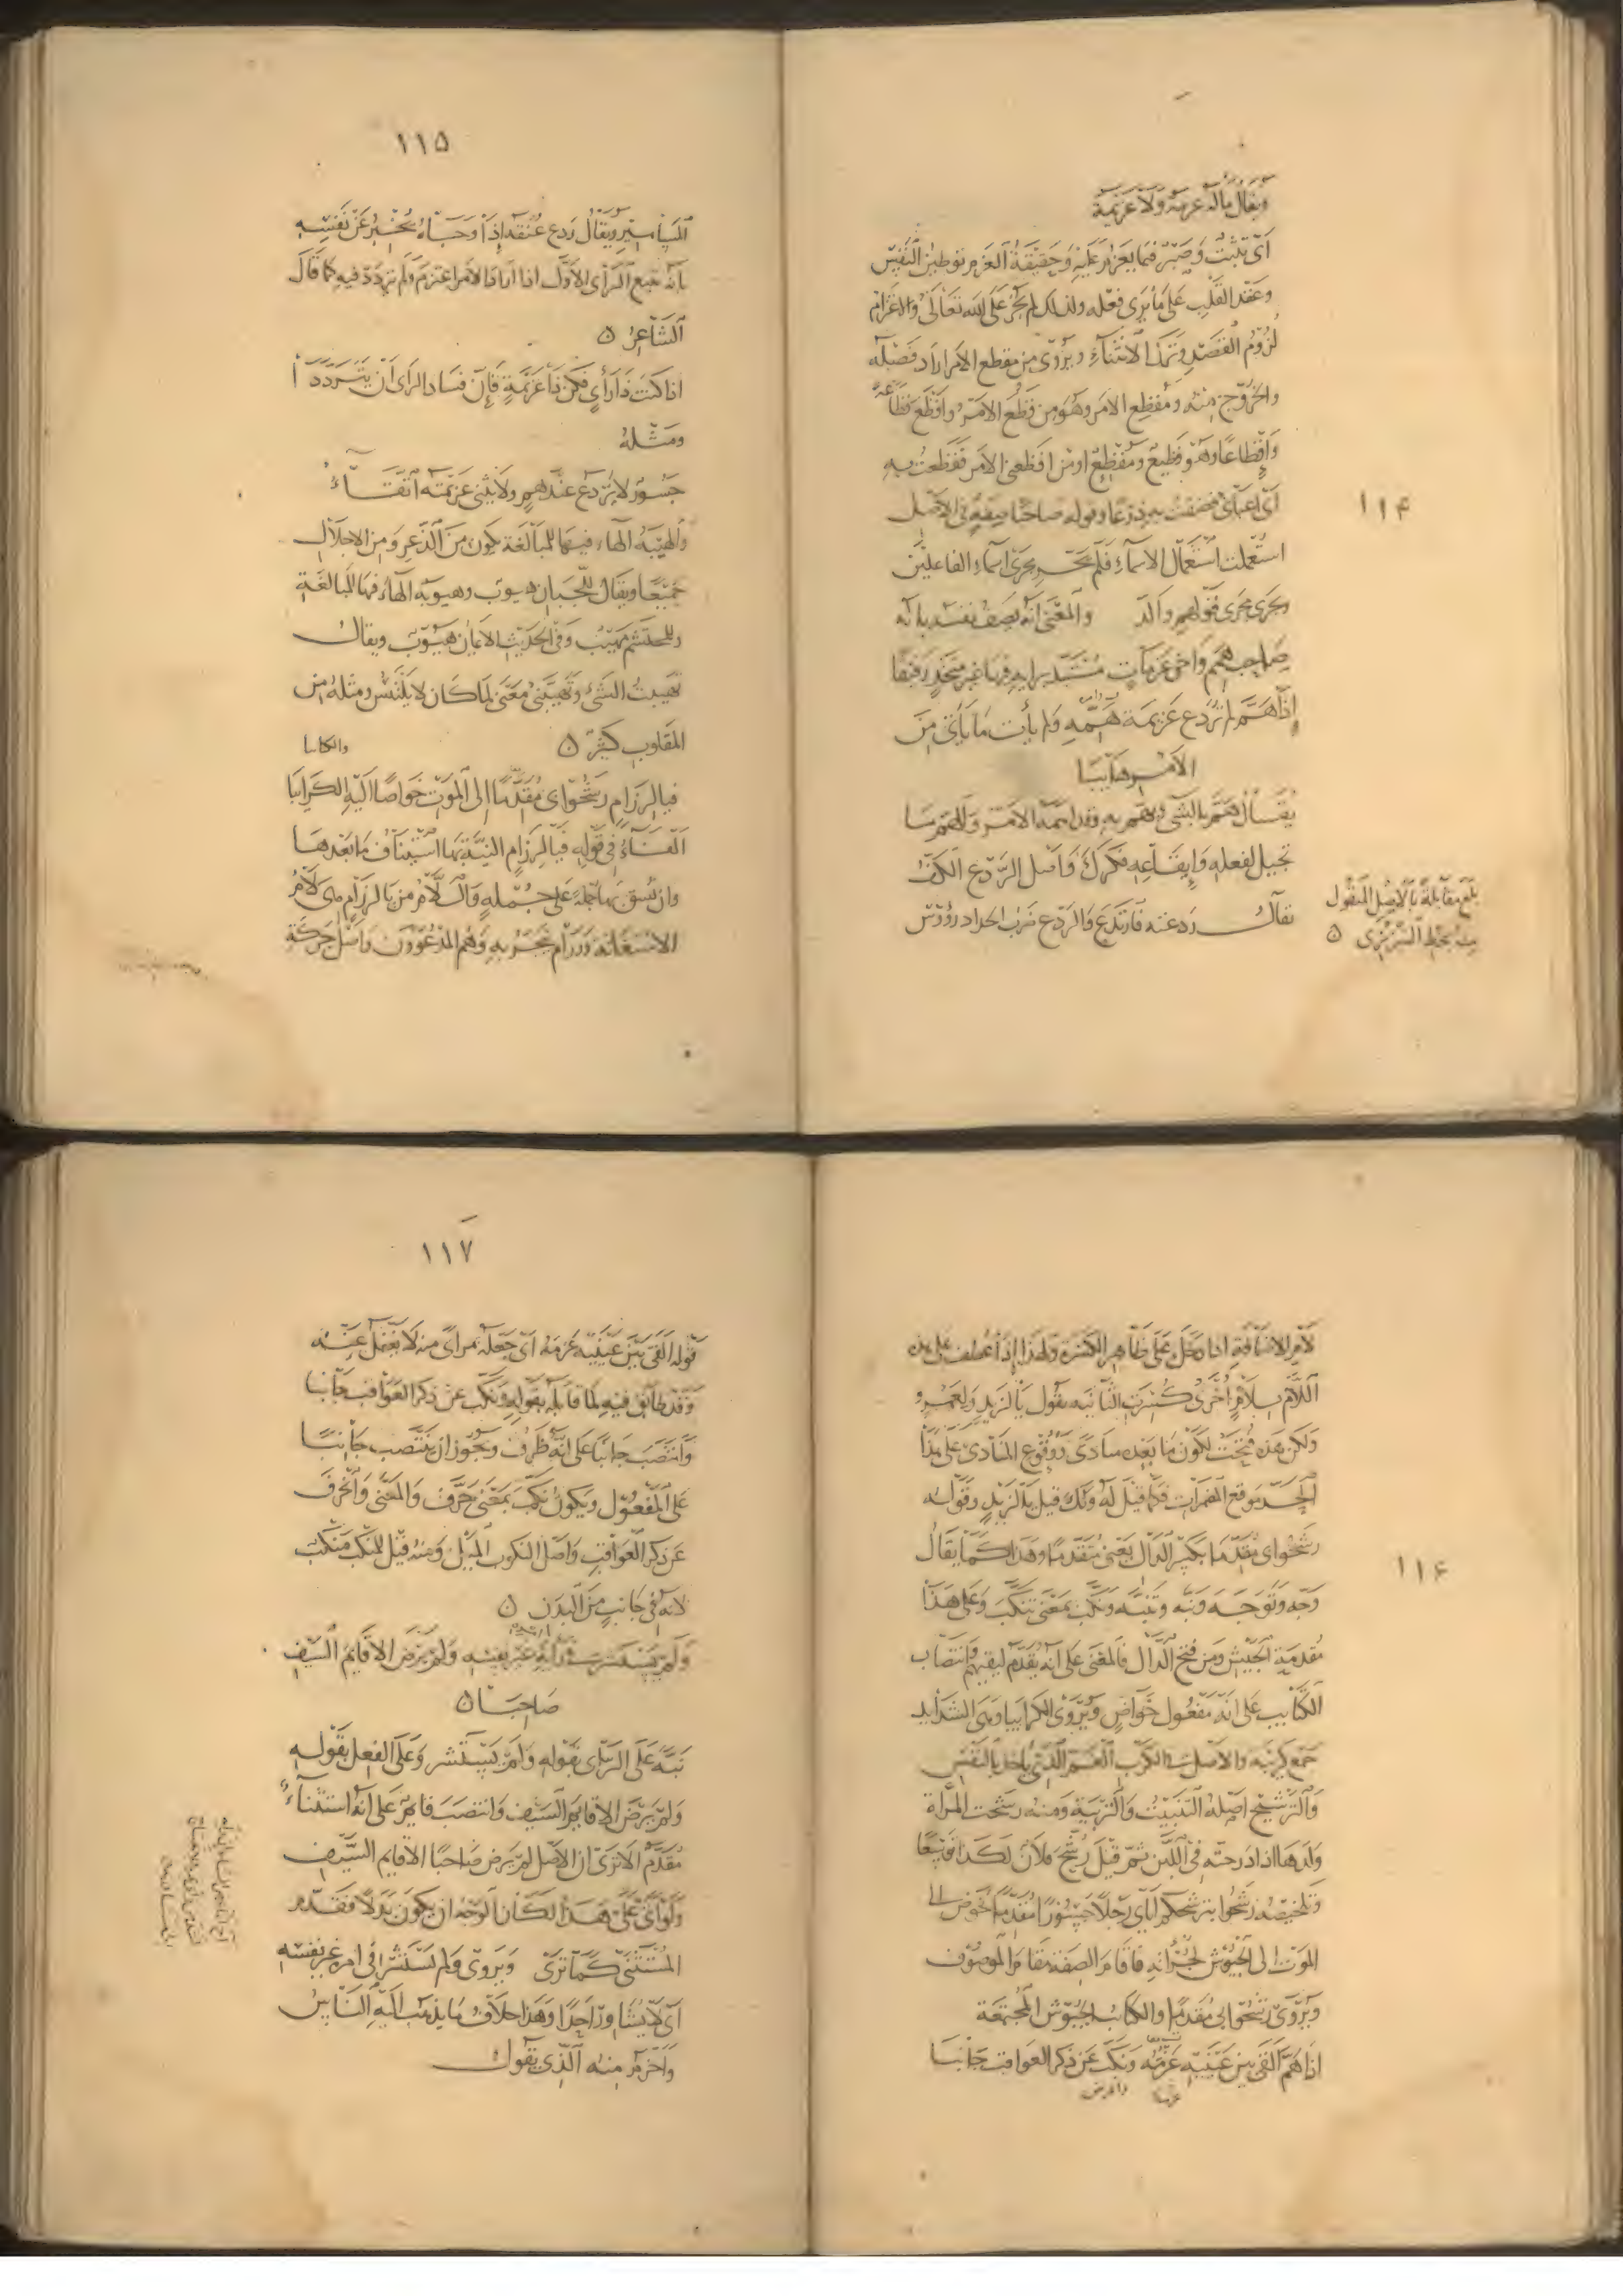 ١١۴
ويقال ماله عزمة ولا عزيمة
اى تثبت وصبر فيما يعزم عليه وحقيقة العزم توطين النفس
وعقد القلب على ما يرى فعله ولذلك لم يجز على الله تعالى والاعتزام
لزوم القصد وترك الانثناء ويروى من مقطع الامر اراد فصله
والخروج منه ومفظع الامر وهو من فظع الامر وافظع فظاعة
وافظاعا وهو فظيع ومفظع او من افظعنى الامر ففظعت به
اى اعيانى فضقت به ذرعا وقوله صاحبا صفة فى الاصل
استعملت استعمال الاسماء فلم تجر مجرى اسماء الفاعلين
وجرى مجرى قولهم والد والمعنى انه يصف نفسه بانه
صاحب همم واخى عزمات مستبد برايه فيها غير متخذ رفيقا
إذا هم لم تردع عزيمة همه ولم يأت ما يأتى من
الامر هائبا
يقال هم بالشى يهم به وقد اهمه الامر والهم ما
تجيل لفعله وايقاعه فكرك واصل الردع الكف
يقال ردعته فارتدع والردع ضرب الحداد رؤوس
بلغ مقابلة بالاصل المنقول
منه بخط التبريزى ه
١١۵
المسامير ويقال ردع عنقه إذا وجأه يخبر عن نفسه
بانه يتبع الرأى الاول اذا اراد الامر اعتزم ولم يتردد فيه كما قال
الشاعر ه
اذا كنت ذا رأي فكن ذا عزيمة فإن فساد الراى ان يترددا
ومثله
جسور لا يروع عند هم ولا يثنى عزيمته اتقاء
والهيبة الهاء فيها للمبالغة يكون من الذعر ومن الاجلال
جميعا ويقال للجبان هيوب وهيوبة الهاء فيها للمبالغة
وللمحتشم مهيب وفى الحديث الايمان هيوب ويقال
تهيبت الشئ وتهيبنى بمعنى لما كان لا يلتبس ومثله من
المقلوب كثير ه
فيا لرزام رشحوا بى مقدما إلى الموت خواضا اليه الكرائبا
الفاء فى قوله فيا لرزام النية بها استيناف ما بعدها
وان نسق بها جملة على جملة واللام من يا لرزام هى لام
الاستغاثة ورزام ينجر به وهم المدعوون واصل حركة
١١۶
لام الاضافة اذا دخل على ظاهر الكسرة ولهذا إذا عطف على هذه
اللام بلام أخرى كسرت الثانية يقول يا لزيد ولعمرو
ولكن هذه فتحت لكون ما بعده منادى ووقوع المنادى على هذا
الحد موقع المضمرات فكما قيل له ولك قيل يا لزيد وقوله
رشحوا بى مقدما بكسر الدال بمعنى متقدما وهذا كما يقال
وجه وتوجه ونبه وتنبه ونكب بمعنى تنكب وعلى هذا
مقدمة الجيش ومن فتح الدال فالمعنى على انه يقدم ليقيهم وانتصاب
الكتائب على انه مفعول خواض ويروى الكرائبا وهى الشدائد
جمع كريبة والاصل فى الكرب الغم الذى ياخذ بالنفس
والترشيح اصله التثبيت والتربية ومنه رشحت المرأة
ولدها اذا درجته فى اللبن ثم قيل رشح فلان لكذا
وتلخيصه رشحوا بترشحكم اياى رجلا جسورا مقدما يخوض
الموت الى الجيوش لجرأته فاقام الصفة مقام الموصوف
ويروى رشحوا بى مقدما والكتائب الجيوش المجتمعة
اذا هم القى بين عينيه عزمه ونكب عن ذكر العواقب جانبا
١١٧
قوله القى بين عينيه عزمه اى جعله بمرأى منه لا يغفل عنه
وقد طابق فيه لما قابله بقوله ونكب عن ذكر العواقب جانبا
وانتصب جانبا على انه ظرف ويجوز ان ينتصب جانبا
على المفعول ويكون نكب بمعنى حرف والمعنى وانحرف
عن ذكر العواقب واصل النكوب الميل ومنه قيل للمنكب منكب
لانه فى جانب من البدن ه
ولم يستشر فى رأيه غير نفسه ولم يرض الا قائم السيف
صاحبا ه
نبه على الرأى بقوله ولم يستشر وعلى الفعل بقوله
ولم يرض الا قائم السيف وانتصب قائم على انه استثناء
مقدم الا ترى ان الاصل لم يرض صاحبا الا قايم السيف
ولو أتى على هذا لكان الوجه ان يكون بدلا فقدم
المستثنى كما ترى ويروى ولم يستشر فى امره غير نفسه
اى لا يشاور احدا وهذا خلاف ما يذهب اليه الناس
واحزم منه الذى يقول